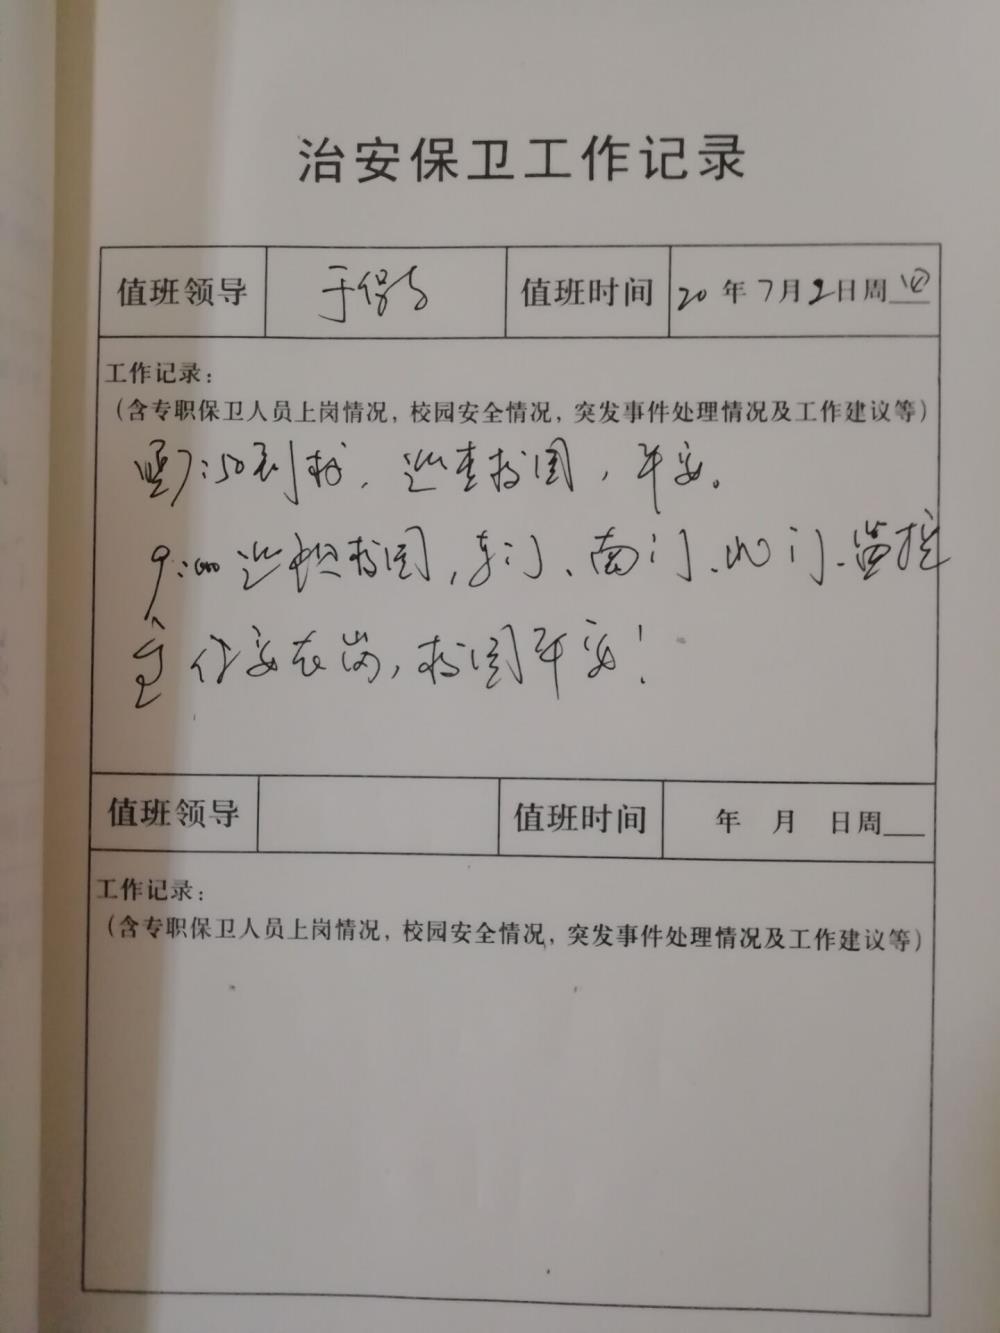 治安保卫工作记录
值班领导 于 值班时间 20年7月2日周四
工作记录：
（含专职保卫人员上岗情况，校园安全情况，突发事件处理情况及工作建议等）
7:50到校，巡查校园，平安。
9:00巡视校园，东门、南门、北门、监控
室 保安在岗，校园平安！
值班领导 值班时间 年 月 日周
工作记录：
（含专职保卫人员上岗情况，校园安全情况，突发事件处理情况及工作建议等）